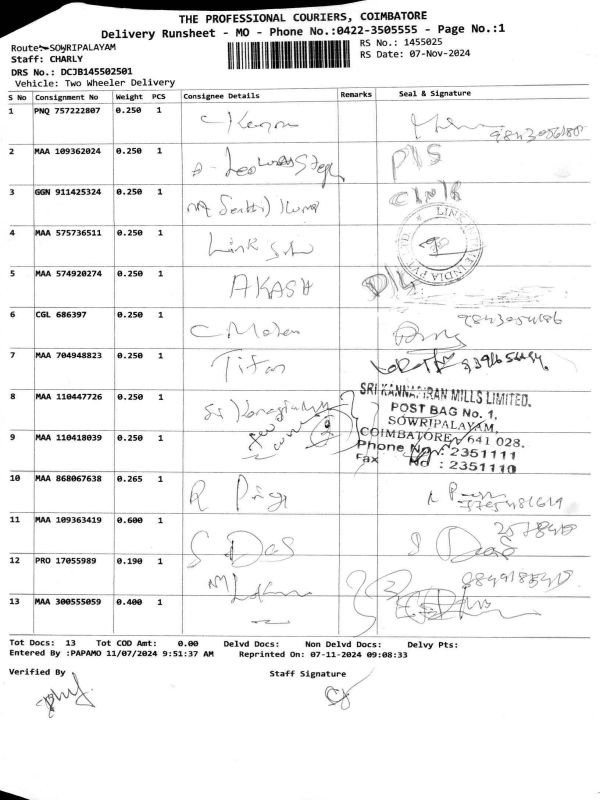 THE PROFESSIONAL COURIERS, COIMBATORE
Delivery Runsheet - MO - Phone No.:0422-3505555 - Page No.:1
Route:-SOWRIPALAYAM
RS No.: 1455025
Staff: CHARLY
RS Date: 07-Nov-2024
DRS No.: DCJB145502501
Vehicle: Two Wheeler Delivery
S No Consignment No Weight PCS Consignee Details Remarks Seal & Signature
1 PNQ 757222807 0.250 1
2 MAA 109362024 0.250 1
3 GGN 911425324 0.250 1
4 MAA 575736511 0.250 1 Link
5 MAA 574920274 0.250 1 AKASH
6 CGL 686397 0.250 1 C Mohan
7 MAA 704948823 0.250 1 Titan
8 MAA 110447726 0.250 1 Sri
SRI KANNAPIRAN MILLS LIMITED.
POST BAG No. 1,
SOWRIPALAYAM,
9 MAA 110418039 0.250 1 COIMBATORE 641 028.
Phone No : 2351111
Fax No : 2351110
10 MAA 868067638 0.265 1 R Priya
11 MAA 109363419 0.600 1 S Das S Das
12 PRO 17055989 0.190 1
13 MAA 300555059 0.400 1
Tot Docs: 13 Tot COD Amt: 0.00 Delvd Docs: Non Delvd Docs: Delvy Pts:
Entered By :PAPAMO 11/07/2024 9:51:37 AM Reprinted On: 07-11-2024 09:08:33
Verified By Staff Signature